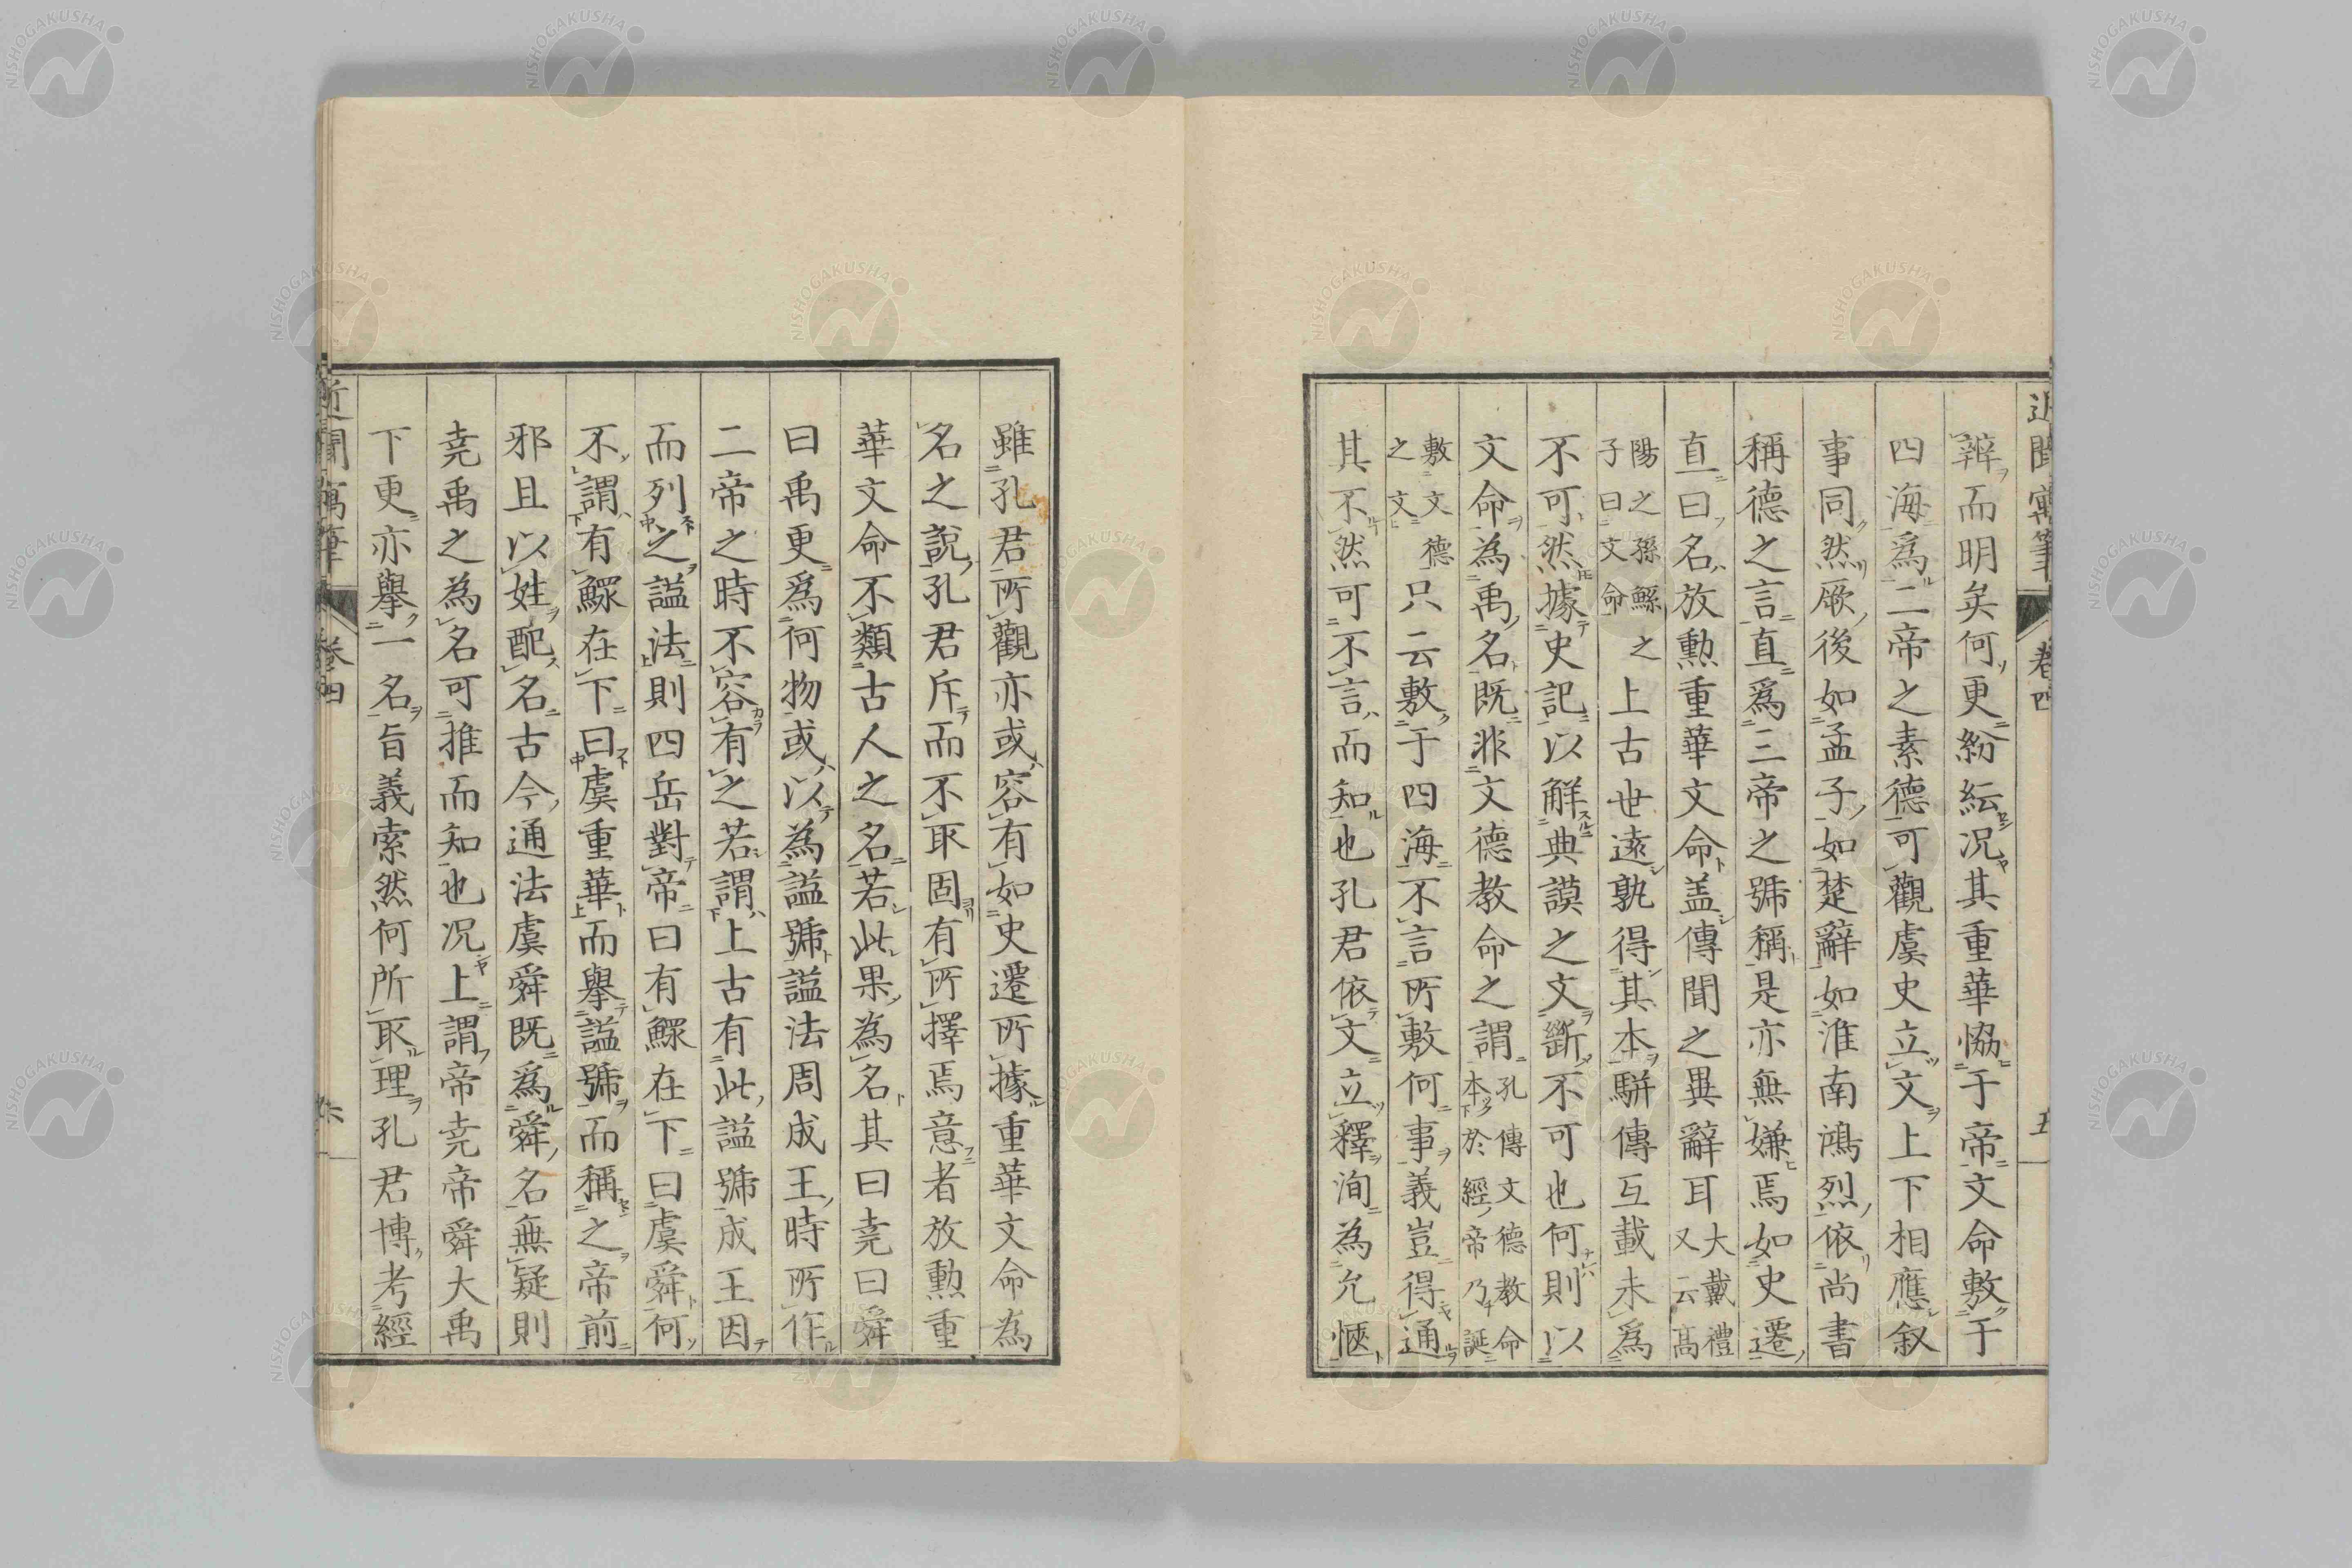 近聞寓筆 卷四 五
辨而明矣何更紛紜况其重華恊于帝文命敷于
四海為二帝之素德可觀虞史立文上下相應叙
事同然厥後如孟子如楚辭如淮南鴻烈依尚書
稱德之言直為三帝之號稱是亦無嫌焉如史遷
直曰名放勲重華文命盖傳聞之異辭耳大戴禮又云髙
陽之孫鯀之子曰文命上古世遠孰得其本駢傳互載未為
不可然據史記以解典謨之文斷不可也何則以
文命為禹名既非文德教命之謂孔傳文德教命本於經帝乃誕
敷文德之文只云敷于四海不言所敷何事義豈得通
其不然可不言而知也孔君依文立釋洵為允愜
雖孔君所觀亦或容有如史遷所據重華文命為
名之說孔君斥而不取固有所擇焉意者放勲重
華文命不類古人之名若此果為名其曰尭曰舜
曰禹更為何物或以為謚號謚法周成王時所作
二帝之時不容有之若謂上古有此謚號成王因
而列之謚法則四岳對帝曰有鰥在下曰虞舜何
不謂有鰥在下曰虞重華而舉謚號而稱之帝前
邪且以姓配名古今通法虞舜既為舜名無疑則
尭禹之為名可推而知也况上謂帝尭帝舜大禹
下更亦舉一名旨義索然何所取理孔君博考經
近聞寓筆 卷四 六
NISHOGAKUSHA